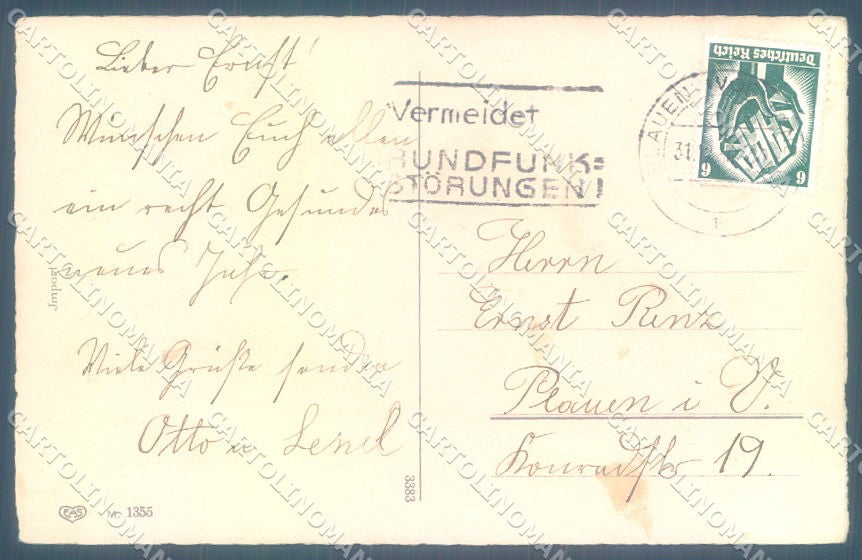 Lieber Ernst!
Wünschen Euch allen
ein recht Gesundes
neues Jahr.
Viele Grüße sendet
Otto u.
Vermeidet
RUNDFUNK=
STÖRUNGEN!
Deutsches Reich
6 6
31.
Herrn
Ernst Renz
Plauen i V.
Konradstr 19.
Import
3383
EAS
Nr. 1355
CARTOLINOMANIA